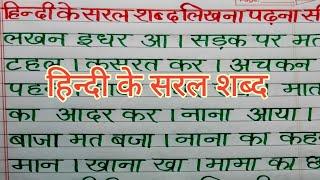 हिन्दी के सरल शब्द लिखना पढ़ना सी
लखन इधर आ । सड़क पर मत
टहल । कसरत कर । अचकन
पह
हिन्दी के सरल शब्द
मात
का आदर कर । नाना आया ।
बाजा मत बजा । नाना का कह
मान । खाना खा । मामा का छ